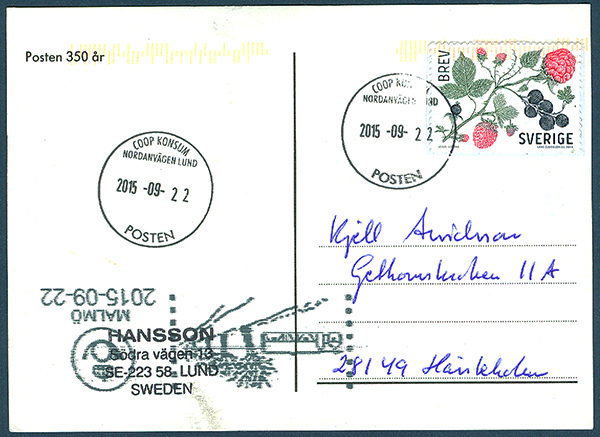 Posten 350 år
BREV
SVERIGE
COOP KONSUM
NORDANVÄGEN LUND
2015 -09- 2 2
POSTEN
COOP KONSUM
NORDANVÄGEN LUND
2015 -09- 2 2
POSTEN
Kjell Arvidsson
11 A
28149 Hässleholm
MALMÖ
2015-09-22
HANSSON
Södra vägen 13
SE-223 58 LUND
SWEDEN